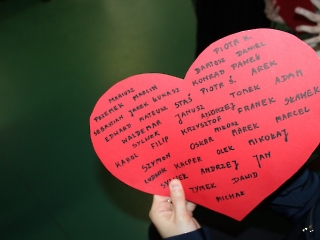 PIOTR K.
BARTOSZ DANIEL
KONRAD PAWEŁ
MARIUSZ
PRZEMEK MARCIN
SEBASTIAN JAREK ŁUKASZ STAŚ PIOTR Ł. AREK
EDWARD MATEUSZ JANUSZ TOMEK ADAM
WALDEMAR ANDRZEJ FRANEK SŁAWEK
FILIP KRZYSZTOF MIKOSZ MAREK MARCEL
KAROL SZYMON OSKAR MIKOŁAJ
LUDWIK KACPER OLEK JAN
ANDRZEJ
TYMEK DAWID
MICHAŁ